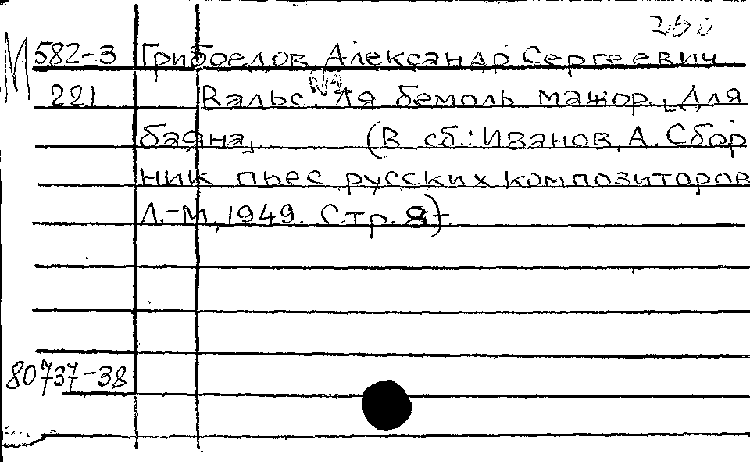 М 582-3 Грибоедов Александр Сергеевич
221 Вальс №1 Ля бемоль мажор. Для
баяна, (В сб.: Иванов, А. Сбор
ник пьес русских композиторов
Л.-М, 1949. Стр. 8).
80737-38